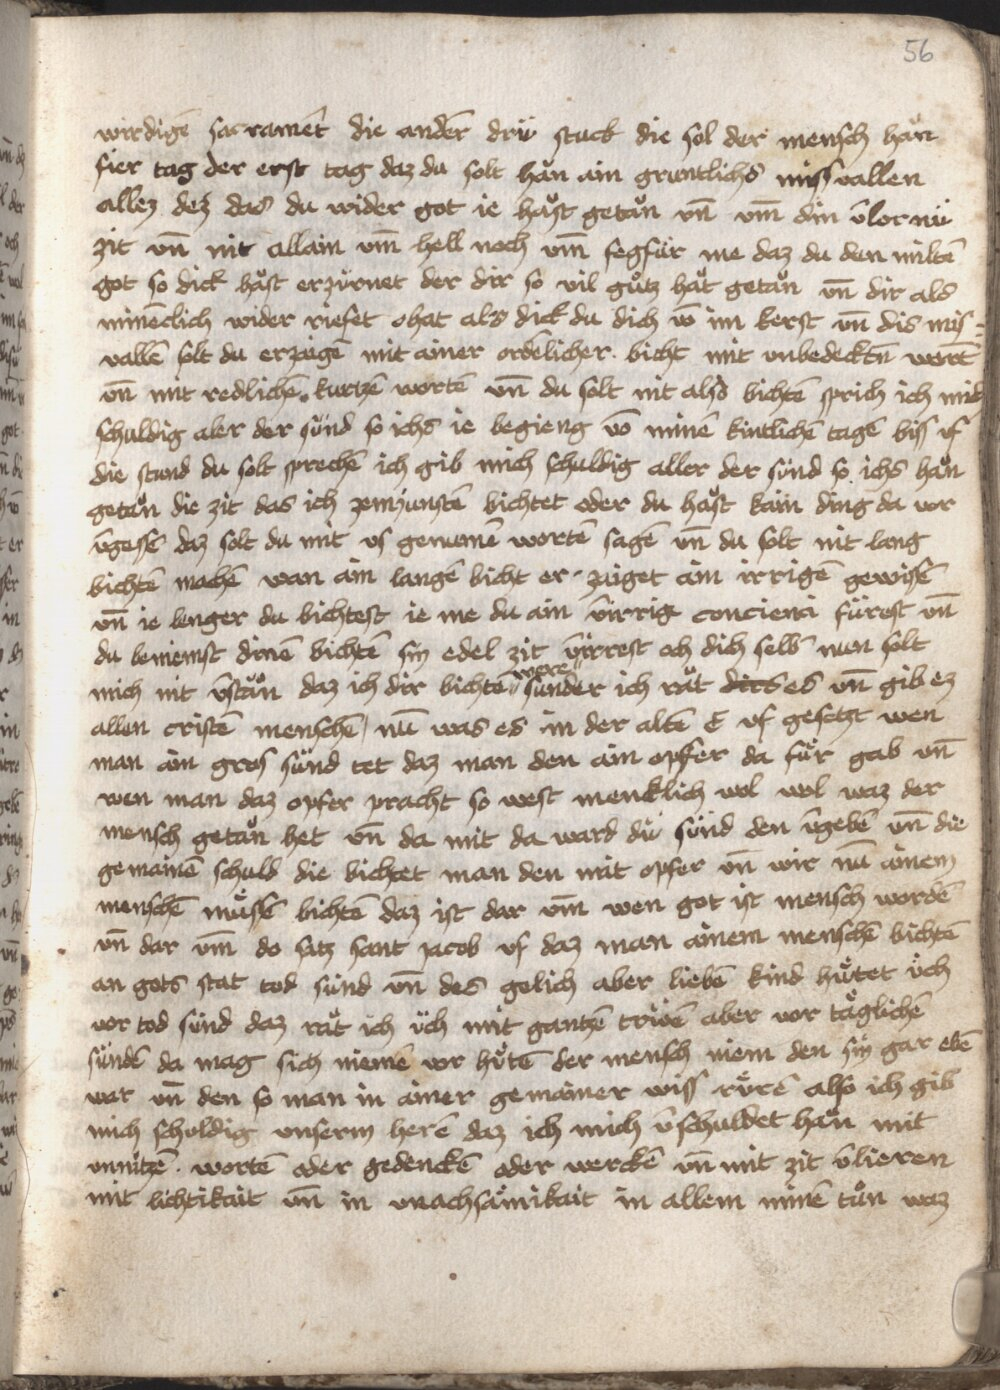 56
wirdigē sacramēt die andēr drü stuck die sol der mensch hān
fier tag der erst tag daz du solt hān ain gruntlichs miss vallen
allez dez das du wider got ie hāst getān vn̄ vm̄ din v̄lornü
zit vn̄ nit allain vm̄ hell noch vm̄ fegfür me daz du den miltē
got so dick hāst erzürnet der dir so vil gůtz hāt getān vn̄ dir als
minēclich wider riefet o hat als dick du dich vō im kerst vn̄ dis mis=
vallē solt du erzögē mit ainer ordelicher bicht mit vnbedecktn̄ wort
vn̄ mit redlichē kurtzē wortē vn̄ du solt nit also bichtē sprich ich mich
schuldig aber der sünd so ichs ie begieng vō minē kintlichē tagē biss vf
die stund du solt sprechē ich gib mich schuldig aller der sünd so ichs hān
getān die zit das ich zemjunstē bichtet oder du hāst kain ding da vor
v̄gessē daz solt du mit vs genumē wortē sagē vn̄ du solt nit lang
bichtē machē wan ain langē bicht er zöiget ain irrigē gewissē
vn̄ ie lenger du bichtest ie me du ain v̄irrig concienci fürest vn̄
du benemst dinē bichtē sin edel zit v̄irrest och dich selb nun solt
mich nit v̄stān daz ich dir bichtē were sunder ich rāt es vn̄ gib ez
allen cristē menschē nū was es in der altē E vf gesetzt wen
man ain gros sünd tet daz man den ain opfer da für gab vn̄
wen man daz opfer pracht so west menklich wol wol waz der
mensch getān het vn̄ da mit da ward dü sünd den v̄gebē vn̄ die
gemainē schuld die bichtet man den mit opfer vn̄ wir nū ainem
menschē müssē bichtē daz ist dar vm̄ wen got ist mensch wordē
vn̄ dar vm̄ do satz sant jacob vf daz man ainem menschē bichtē
an gots stat tod sünd vn̄ des gelich aber liebē kind hütet üch
vor tod sünd daz rāt ich üch mit gantzē trüwē aber vor täglichē
sündē da mag sich niemē vor hütē der mensch niem den sin gar ebē
war vn̄ den so man in ainer gemainer wiss rürē also ich gib
mich scholdig vnserm herē daz ich mich v̄schuldet hān mit
vnnitzē wortē oder gedenckē oder werckē vn̄ mit zit v̄lieren
mit lichtikait vn̄ in vnachsamikait in allem minē tůn waz